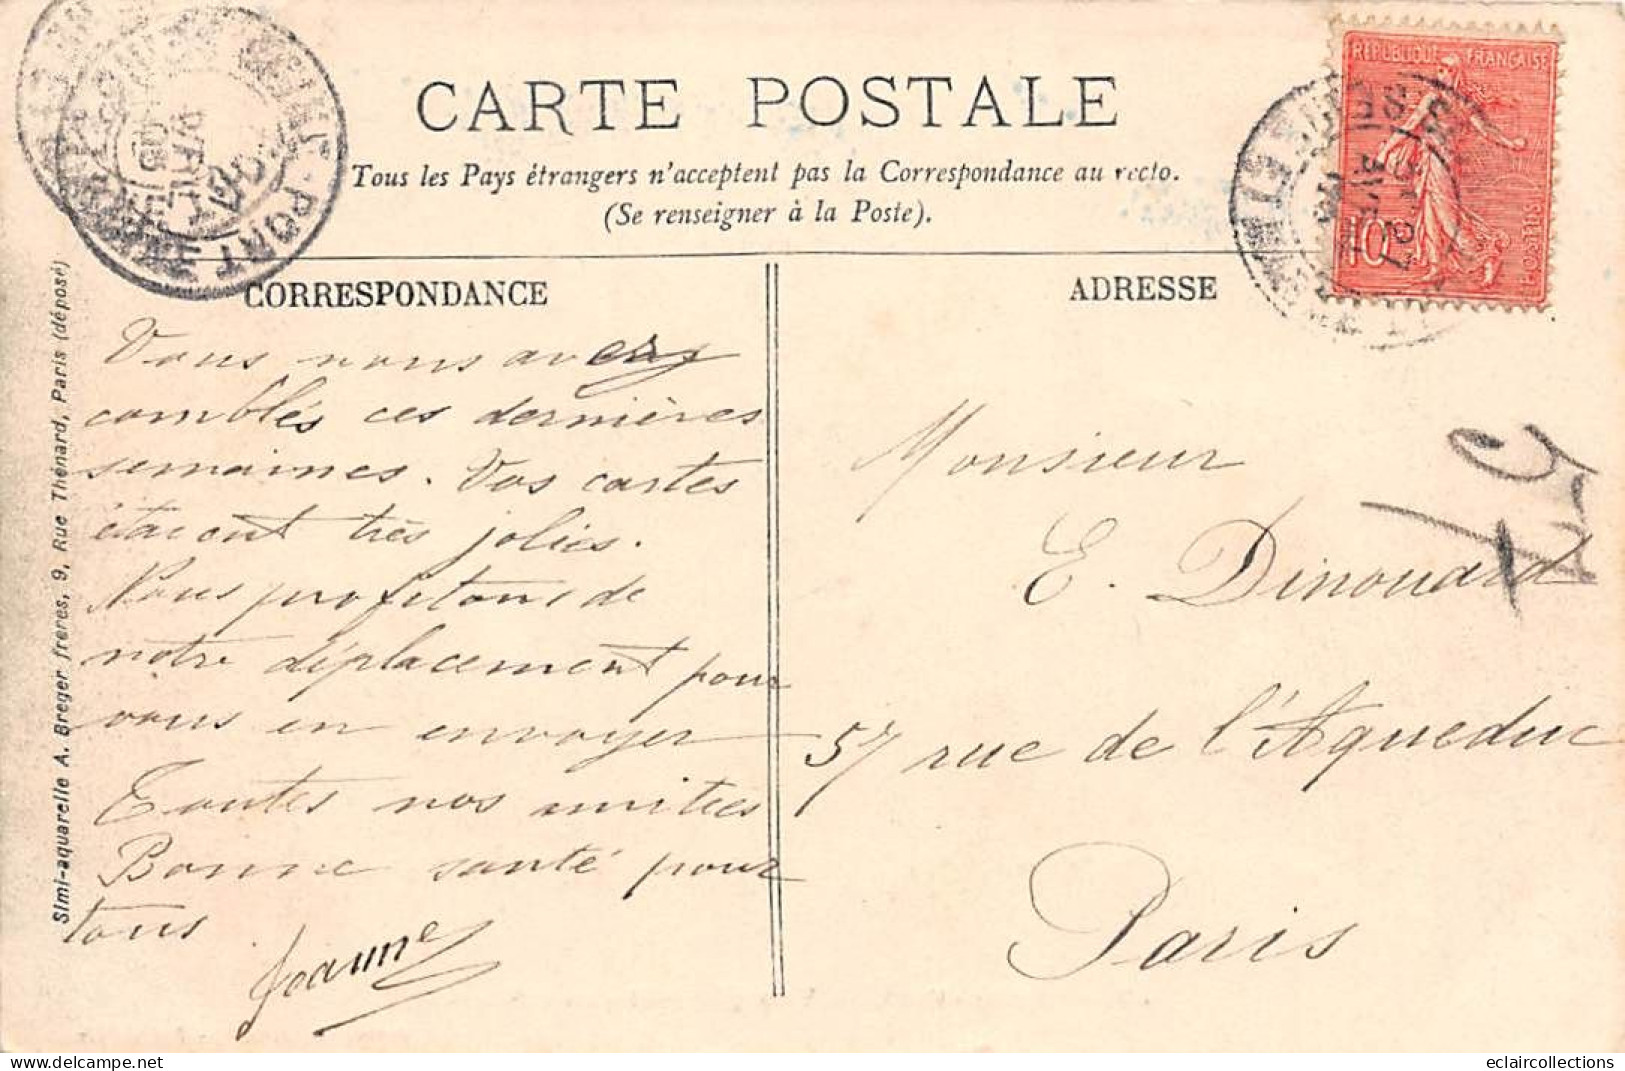 CARTE POSTALE
Tous les Pays étrangers n'acceptent pas la Correspondance au recto.
(Se renseigner à la Poste).
CORRESPONDANCE
ADRESSE
REPUBLIQUE FRANÇAISE
10
POSTES
PORT
Vous nous avez
comblés ces dernières
semaines. Vos cartes
étaient très jolies.
Nous profitons de
notre déplacement pour
vous en envoyer
Toutes nos amitiés
Bonne santé pour
tous
Jeanne
Monsieur
E. Dinouard
57 rue de l'Aqueduc
Paris
Simi-aquarelle A. Breger frères, 9, Rue Thénard, Paris (déposé)
eclaircollections